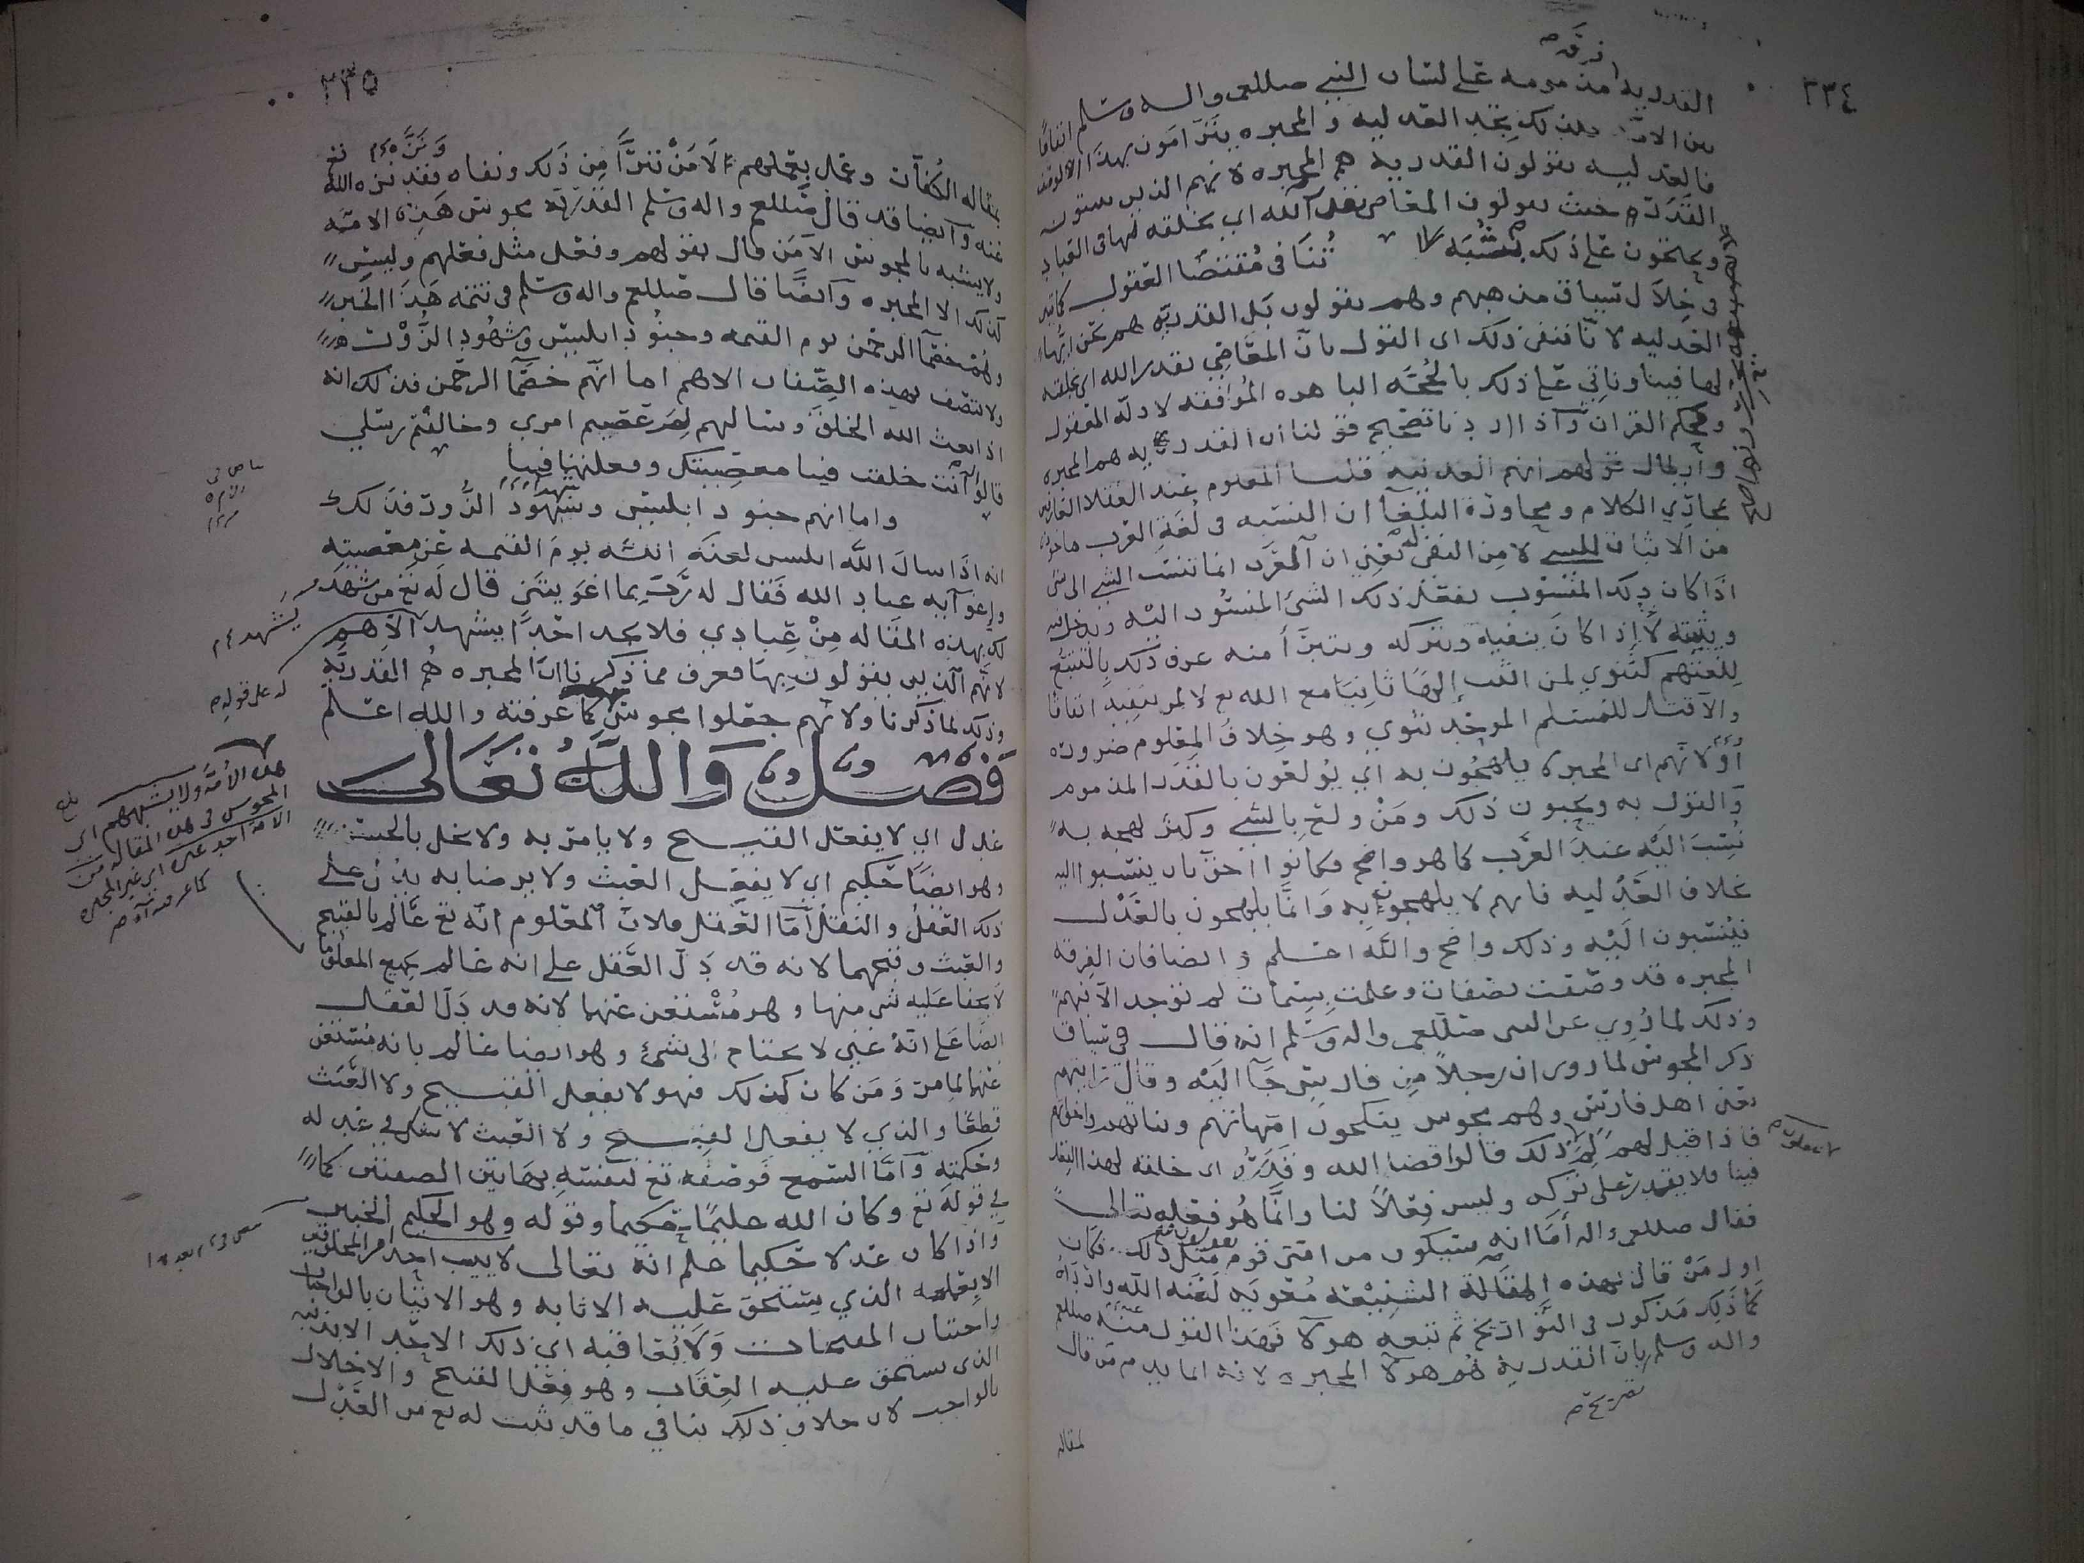 ٢٣٤
فرقة
القدرية مذمومة على لسان النبي صللعم واله وسلم اتفاقا
بين الامة ولذلك تجد العدليه والمجبره يترامون بهذا الاسم
فالعدليه يقولون القدرية هم المجبره لانهم الذين يثبتون
القدر حيث يقولون المعاصي بقدر الله اي بخلقه لها في العباد
ويحتجون على ذلك بشبه
في خلال سياق مذهبهم وهم يقولون بل القدريه هم نحن ايها
العدليه لانا ننفي ذلك اي القول بان المعاصي بقدر الله اي بخلقه
لها فينا وناتي على ذلك بالحجه الباهره الموافقه لادلة العقول
ومحكم القران واذا اردنا تصحيح قولنا ان القدريه هم المجبره
وابطال قولهم انهم العدليه قلنا المعلوم عند العقلا العارفين
مجاري الكلام ومحاورة البلغآ ان النسبه في لغة العرب ماخوذة
من الاثبات للشي لا من النفي له يعني ان العرب انما تنسب الشي الى شي
اذا كان ذلك المنسوب يفعل ذلك الشي المنسوب اليه
ويثبته لا اذا كان ينفيه ويتركه ويتبرأ منه عرف ذلك بالتتبع
للغتهم كثنوي لمن اثبت إلهًا ثانيا مع الله تع لا لمن ينفيه اتفاقا
والا قيل للمسلم الموحد ثنوي وهو خلاف المعلوم ضرورة
ولانهم اي المجبرة يلهجون به اي يولعون بالقدر المذموم
والقول به ويحبون ذلك ومن ولع بالشي وكثر لهجه به
نسب اليه عند العرب كما هو واضح فكانوا احق بان ينسبوا اليه
بخلاف العدليه فانهم لا يلهجون به وانما يلهجون بالعدل
فينسبون اليه وذلك واضح والله اعلم وايضا فان الفرقة
المجبره قد وصفت بصفات وعلمت بسمات لم توجد الا فيهم
وذلك لما روي عن النبي صللعم واله وسلم انه قال في سياق
ذكر المجوس لما روى ان رجلا من فارس جآ اليه وقال رايتهم
يعني اهل فارس وهم مجوس ينكحون امهاتهم وبناتهم واخواتهم
فاذا قيل لهم لم ذلك قالوا قضا الله وقدره اي خلقه لهذا الفعل
فينا فلا نقدر على تركه وليس فعلا لنا وانما هو فعله تعالى
فقال صللعم واله أما انه سيكون من امتي قوم يقولون مثل ذلك فكان
اول من قال بهذه المقالة الشنيعة معويه لعنه الله
كما ذلك مذكور في التواريخ ثم تبعه هولآ فهذا القول منه صللعم
واله وسلم بان القدرية هم هولآ المجبره لانه
تصريح
لمقاله
٢٣٥
بمقاله الكفار وعمل بعملهم الا من تبرأ من ذلك ونفاه فقد نزه الله
عنه وايضا قد قال صللعم واله وسلم القدرية مجوس هذه الامه
ولا يشبه بالمجوس الا من قال بقولهم وفعل مثل فعلهم وليس
كذلك الا المجبره وايضا قال صللعم واله وسلم في تتمة هذا الخبر
وهم خصما الرحمن يوم القيمه وجنود ابليس وشهود الزور
ولا يتصف بهذه الصفات الا هم اما انهم خصما الرحمن فذلك انه
اذا بعث الله الخلق وسالهم لم عصيتم امري وخالفتم رسلي
قالوا انت خلقت فينا معصيتك وفعلتها فينا
واما انهم جنود ابليس وشهود الزور فذلك
انه اذا سال الله ابليس لعنه الله يوم القيمه عن معصيته
وإغوآيه عباد الله فقال له رب بما اغويتني قال له تع من يشهد
لك بهذه المقاله من عبادي فلا يجد احدا يشهد الا هم
لانهم الذين يقولون بها فعرف مما ذكرنا ان المجبره هم القدريه
وذلك لما ذكرنا ولانهم جعلوا مجوس كما عرفته والله اعلم
فصل والله تعالى
عدل اي لا يفعل القبيح ولا يامر به ولا يخل بالحسن
وهو ايضا حكيم اي لا يفعل العبث ولا يرضا به يدل على
ذلك العقل والنقل أما العقل فلان المعلوم انه تع عالم بالقبيح
والعبث وقبحهما لانه قد دل العقل على انه عالم بجميع المعلومات
لا يخفا عليه شي منها وهو مستغن عنهما لانه قد دل العقل
ايضا على انه غني لا يحتاج الى شي وهو ايضا عالم بانه مستغن
عنهما لما مر ومن كان كذلك فهو لا يفعل القبيح ولا العبث
قطعا والذي لا يفعل القبيح ولا العبث لا شك في عدله
وحكمته واما السمع فوصفه تع لنفسه بهاتين الصفتين كما
في قوله تع وكان الله عليما حكيما وقوله وهو الحكيم الخبير
واذا كان عدلا حكيما علم انه تعالى لا يثيب احدا من المخلوقين
الا بعمله الذي يستحق عليه الاثابه وهو الاتيان بالواجبات
واجتناب المقبحات ولا يعاقبه اي ذلك الاحد الا بذنبه
الذي يستحق عليه العقاب وهو فعل القبيح والاخلال
بالواجب لان خلاف ذلك ينافي ما قد ثبت له تع من العدل
كه على قولهم
هذه الأمة ولا يشبههم اي
المجوس في هذه المقاله من
الامه احد غيرهم اي غير المجبره
كما عرفته انفا